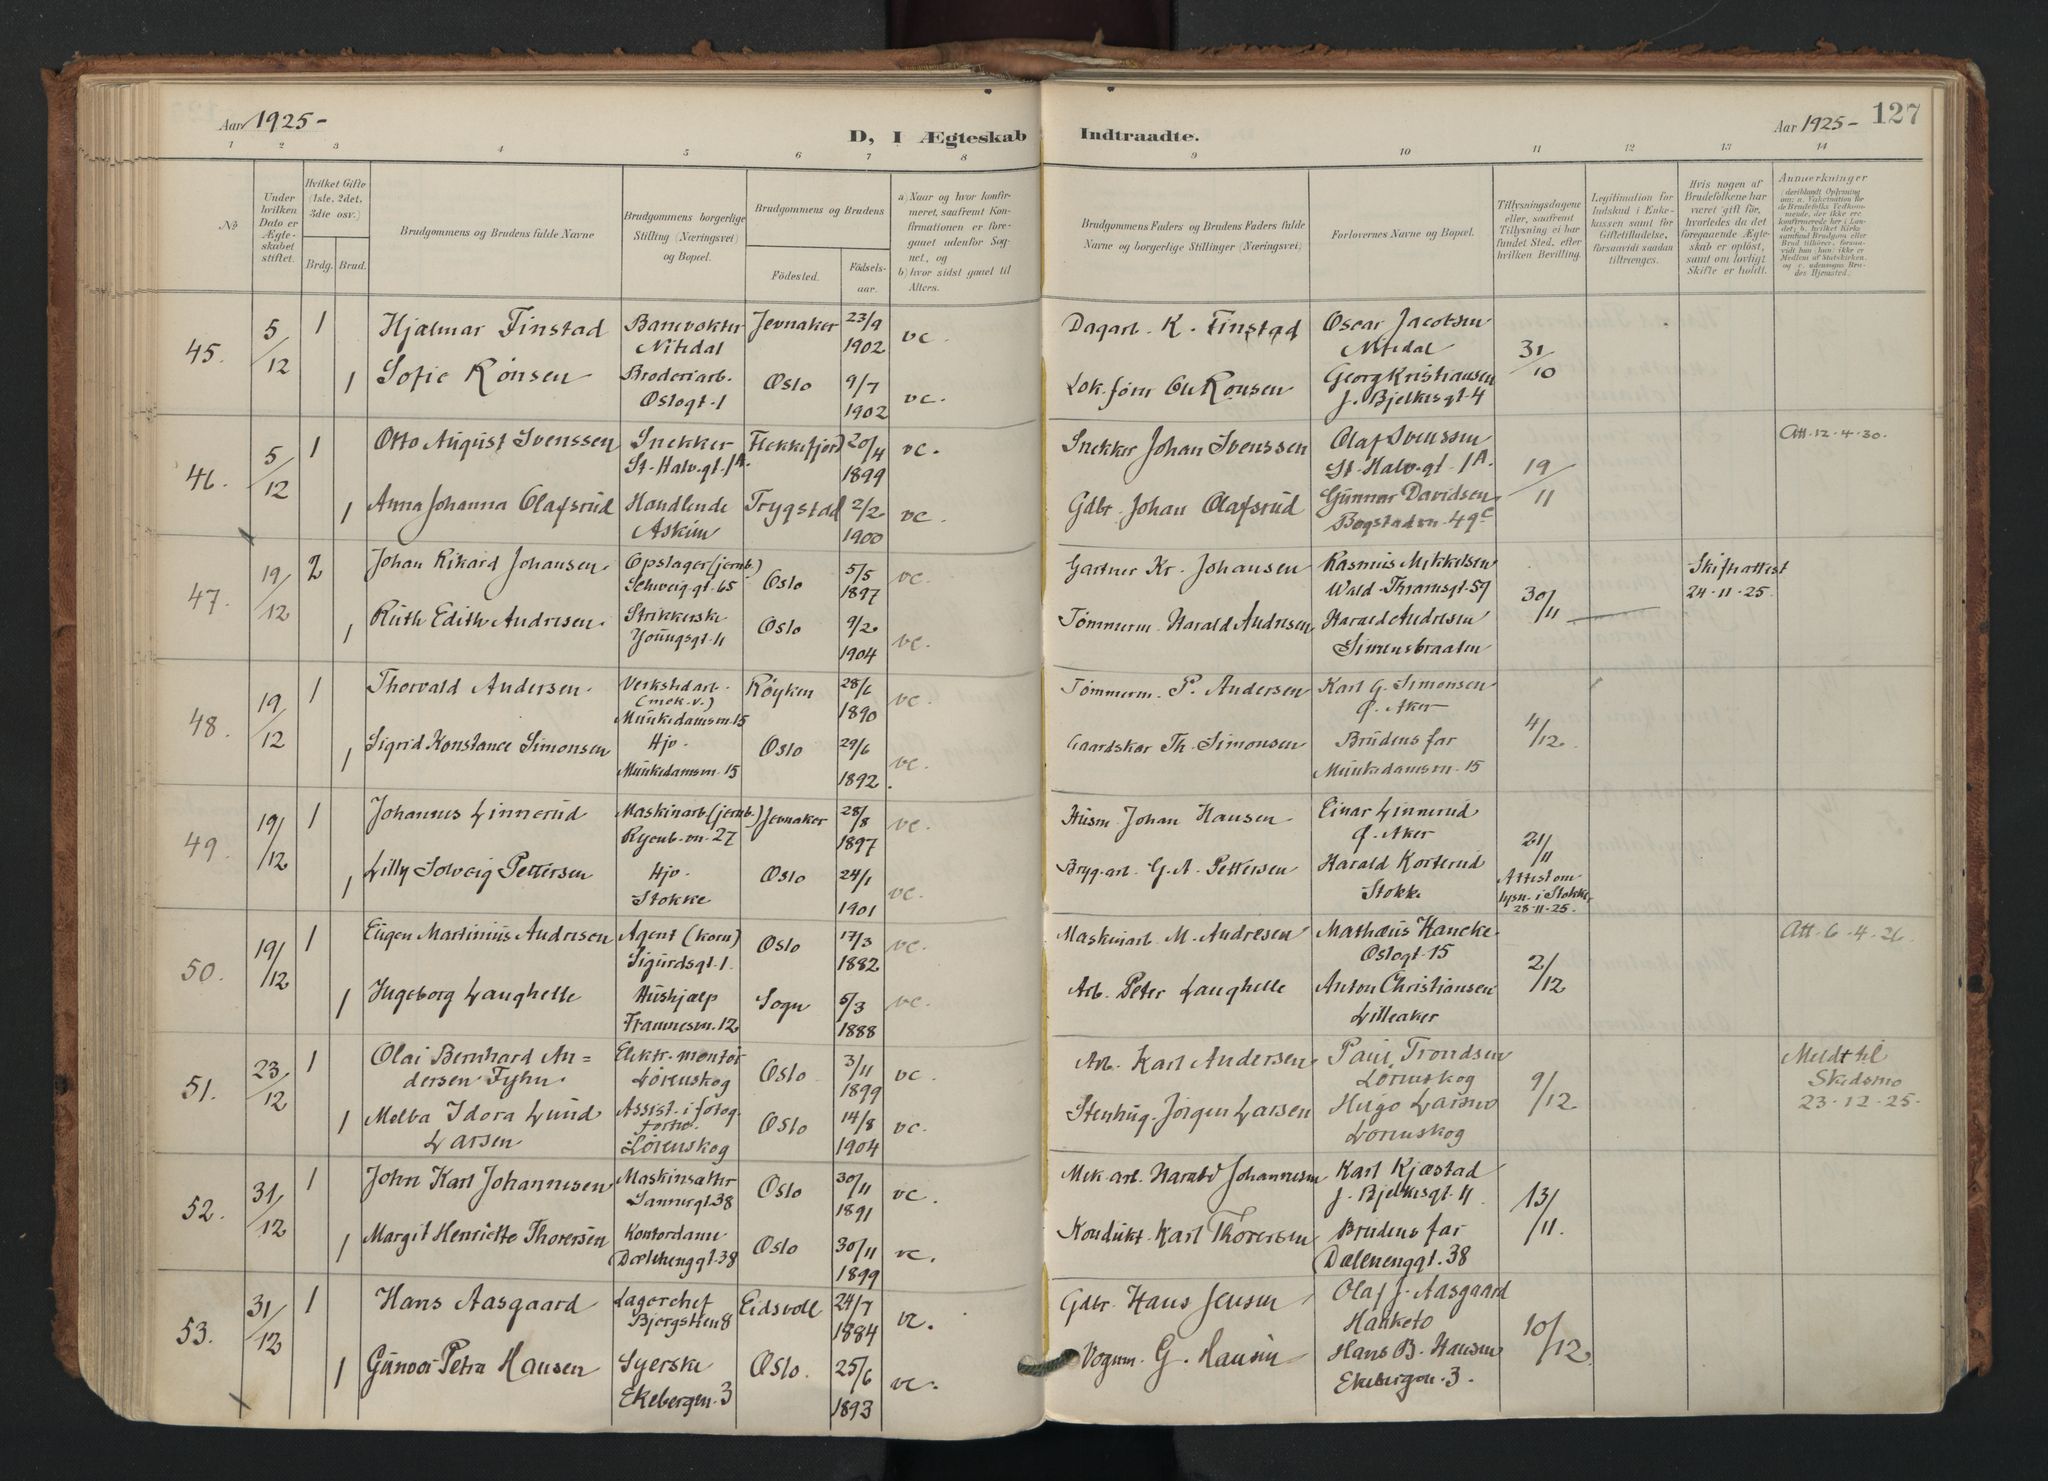 Aar 1925-
D, I Ægteskab Indtraadte.
Aar 1925- 127
1 2 3 4 5 6 7 8 9 10 11 12 13 14
No
Under hvilken Dato er Ægteskabet stiftet.
Hvilket Gifte (1ste, 2det, 3die osv.)
Brdg. Brud.
Brudgommens og Brudens fulde Navne
Brudgommens borgerlige Stilling (Næringsvei) og Bopæl.
Brudgommens og Brudens
Fødested. Fødselsaar.
a) Naar og hvor konfirmeret, saafremt Konfirmationen er foregaaet udenfor Sognet, og
b) hvor sidst gaaet til Alters.
Brudgommens Faders og Brudens Faders fulde Navne og borgerlige Stillinger (Næringsvei)
Forlovernes Navne og Bopæl.
Tillysningsdagene eller, saafremt Tillysning ei har fundet Sted, efter hvilken Bevilling.
Legitimation for Indskud i Enkekassen samt for Giftetilladelse, forsaavidt saadan tiltrænges.
Hvis nogen af Brudefolkene har været gift før, hvorledes da det foregaaende Ægteskab er opløst, samt om lovligt Skifte er holdt.
Anmærkninger
45. 5/12 1 Hjalmar Finstad Banevokter Nitedal Jevnaker 23/9 1902 vc. Dagarb. K. Finstad Oscar Jacobsen Nitedal 31/10
1 Sofie Rønsen Broderiarb. Oslogt. 1 Oslo 9/7 1902 vc. Lok.förer Ole Rønsen Georg Kristiansen J. Bjelkesgt. 4
46. 5/12 1 Otto August Svenssen Snekker St. Halv.gt. 1A. Flekkefjord 20/4 1899 vc. Snekker Johan Svenssen Olaf Svenssen St. Halv.gt. 1A. 19/11 Att. 12.4.30.
1 Anna Johanna Olafsrud Handlende Askim Trygstad 2/2 1900 vc. Gdbr. Johan Olafsrud Gunnar Davidsen Bogstadvn. 49c
47. 19/12 2 Johan Rikard Johansen. Opslager (jernb.) Schweig.gt. 65 Oslo 5/5 1897 vc. Gartner Kr. Johansen Rasmus Mikkelsen Wald. Thranesgt. 59 30/11 Skifteattest 24.11.25.
1 Ruth Edith Andresen. Strikkerske Youngsgt. 4 Oslo 9/2 1904 vc. Tømmerm. Harald Andresen Harald Andresen Simensbraaten
48. 19/12 1 Thorvald Andersen. Verkstedarb. (mek.v.) Munkedamsvn. 15 Røyken 28/6 1890 vc. Tømmerm. P. Andersen Karl G. Simonsen Ø. Aker 4/12
1 Sigrid Konstance Simonsen Hjv. Munkedamsvn. 15 Oslo 29/6 1892. vc. Gaardskar Th. Simonsen Brudens far Munkedamsvn. 15
49. 19/12 1 Johannes Linnerud Maskinarb. (jernb.) Ryenb.vn. 27 Jevnaker 28/8 1897 vc. Husm. Johan Hansen Einar Linnerud Ø. Aker 21/11
1 Lilly Solveig Pettersen Hjv. Stokke Oslo 24/1 1901 vc. Bryg.arb. G. A. Pettersen Harald Korterud Stokke Attest om lysn. i Stokke 28-11-25.
50. 19/12 1 Eugen Martinius Andresen Agent (korn) Sigurdsgt. 1. Oslo 17/3 1882 vc. Maskinarb. M. Andresen Mathæus Hancke Oslogt. 15 2/12 Att. 6.4.26.
1 Ingeborg Laughelle Hushjælp Framnesvn. 12 Sogn 5/3 1888 vc. Arb. Peter Laughelle Anton Christiansen Lilleaker
51. 23/12 1 Olai Bernhard Andersen Fyhn. Elektr. montør Lørenskog Oslo 3/11 1899 vc. Arb. Karl Andersen Paul Trondsen Lørenskog 9/12 Meldt til Skedsmo 23.12.25.
1 Melba Idora Lund Larsen Assist. i fotog. Lørenskog Oslo 14/8 1904 vc. Stenhug. Jørgen Larsen Hugo Larsen Lørenskog
52. 31/12 1 John Karl Johannesen Maskinsætter Sannergt. 38 Oslo 30/11 1891 vc. Mek.arb. Harald Johannesen Karl Kjæstad J. Bjelkesgt. 4. 13/11.
1 Margit Henriette Thoresen Kontordame Dælenenggt. 38 Oslo 30/11 1899 vc. Kondukt. Karl Thoresen Brudens far Dælenenggt. 38
53. 31/12 1 Hans Aasgaard Lagerchef Bjergstien 8 Eidsvoll 24/7 1884 vc. Gdbr. Hans Jensen Olaf J. Aasgaard Hauketo 10/12
1 Gunvor Petra Hansen Syerske Ekebergvn. 3 Oslo. 25/6 1893 vc. Vognm. G. Hansen Hans B. Hansen Ekebergvn. 3.